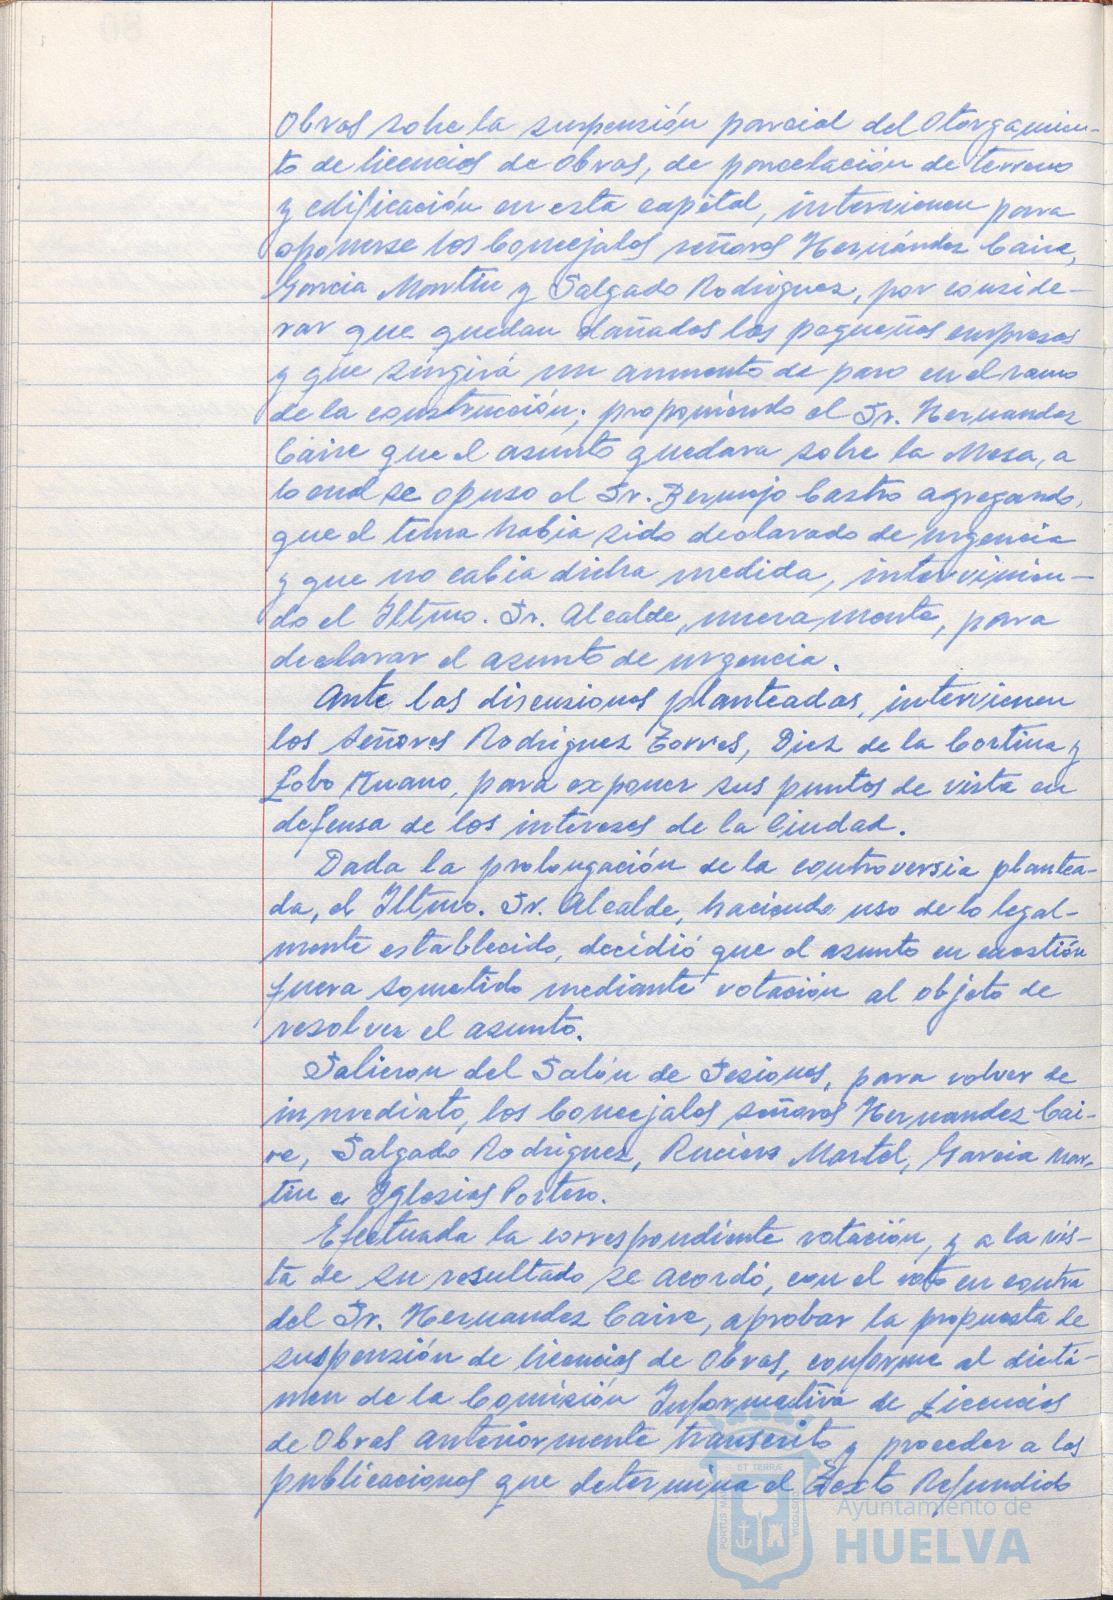 Obras sobre la suspensión parcial del Otorgamien-
to de licencias de Obras, de parcelación de terreno
y edificación en esta capital, intervienen para
oponerse los Concejales señores Hernández Caire,
García Martín y Salgado Rodríguez, por conside-
rar que quedan dañados las pequeñas empresas
y que surgirá un aumento de paro en el ramo
de la construcción; proponiendo el Sr. Hernandez
Caire que el asunto quedara sobre la Mesa, a
lo cual se opuso el Sr. Bermejo Castro agregando,
que el tema habia sido declarado de urgencia
y que no cabia dicha medida, intervinien-
do el Iltmo. Sr. Alcalde, nuevamente, para
declarar el asunto de urgencia.
Ante las discusiones planteadas, intervienen
los Señores Rodriguez Torres, Diez de la Cortina y
Lobo para exponer sus puntos de vista en
defensa de los intereses de la Ciudad.
Dada la prolongación de la controversia plantea-
da, el Iltmo. Sr. Alcalde, haciendo uso de lo legal-
mente establecido, decidió que el asunto en cuestión
fuera sometido mediante votación al objeto de
resolver el asunto.
Salieron del Salón de Sesiones, para volver de
inmediato, los Concejales señores Hernandez Cai-
re, Salgado Rodriguez, Martel, Garcia Mar-
tin e Iglesias Portero.
Efectuada la correspondiente votación, y a la vis-
ta de su resultado se acordó, con el voto en contra
del Sr. Hernandez Caire, aprobar la propuesta de
suspensión de licencias de Obras, conforme al dictá-
men de la Comisión Informativa de Licencias
de Obras anteriormente transcrito y proceder a las
publicaciones que determina el Texto Refundido
ET TERRAE
PORTUS MARIS
CUSTODIA
Ayuntamiento de
HUELVA